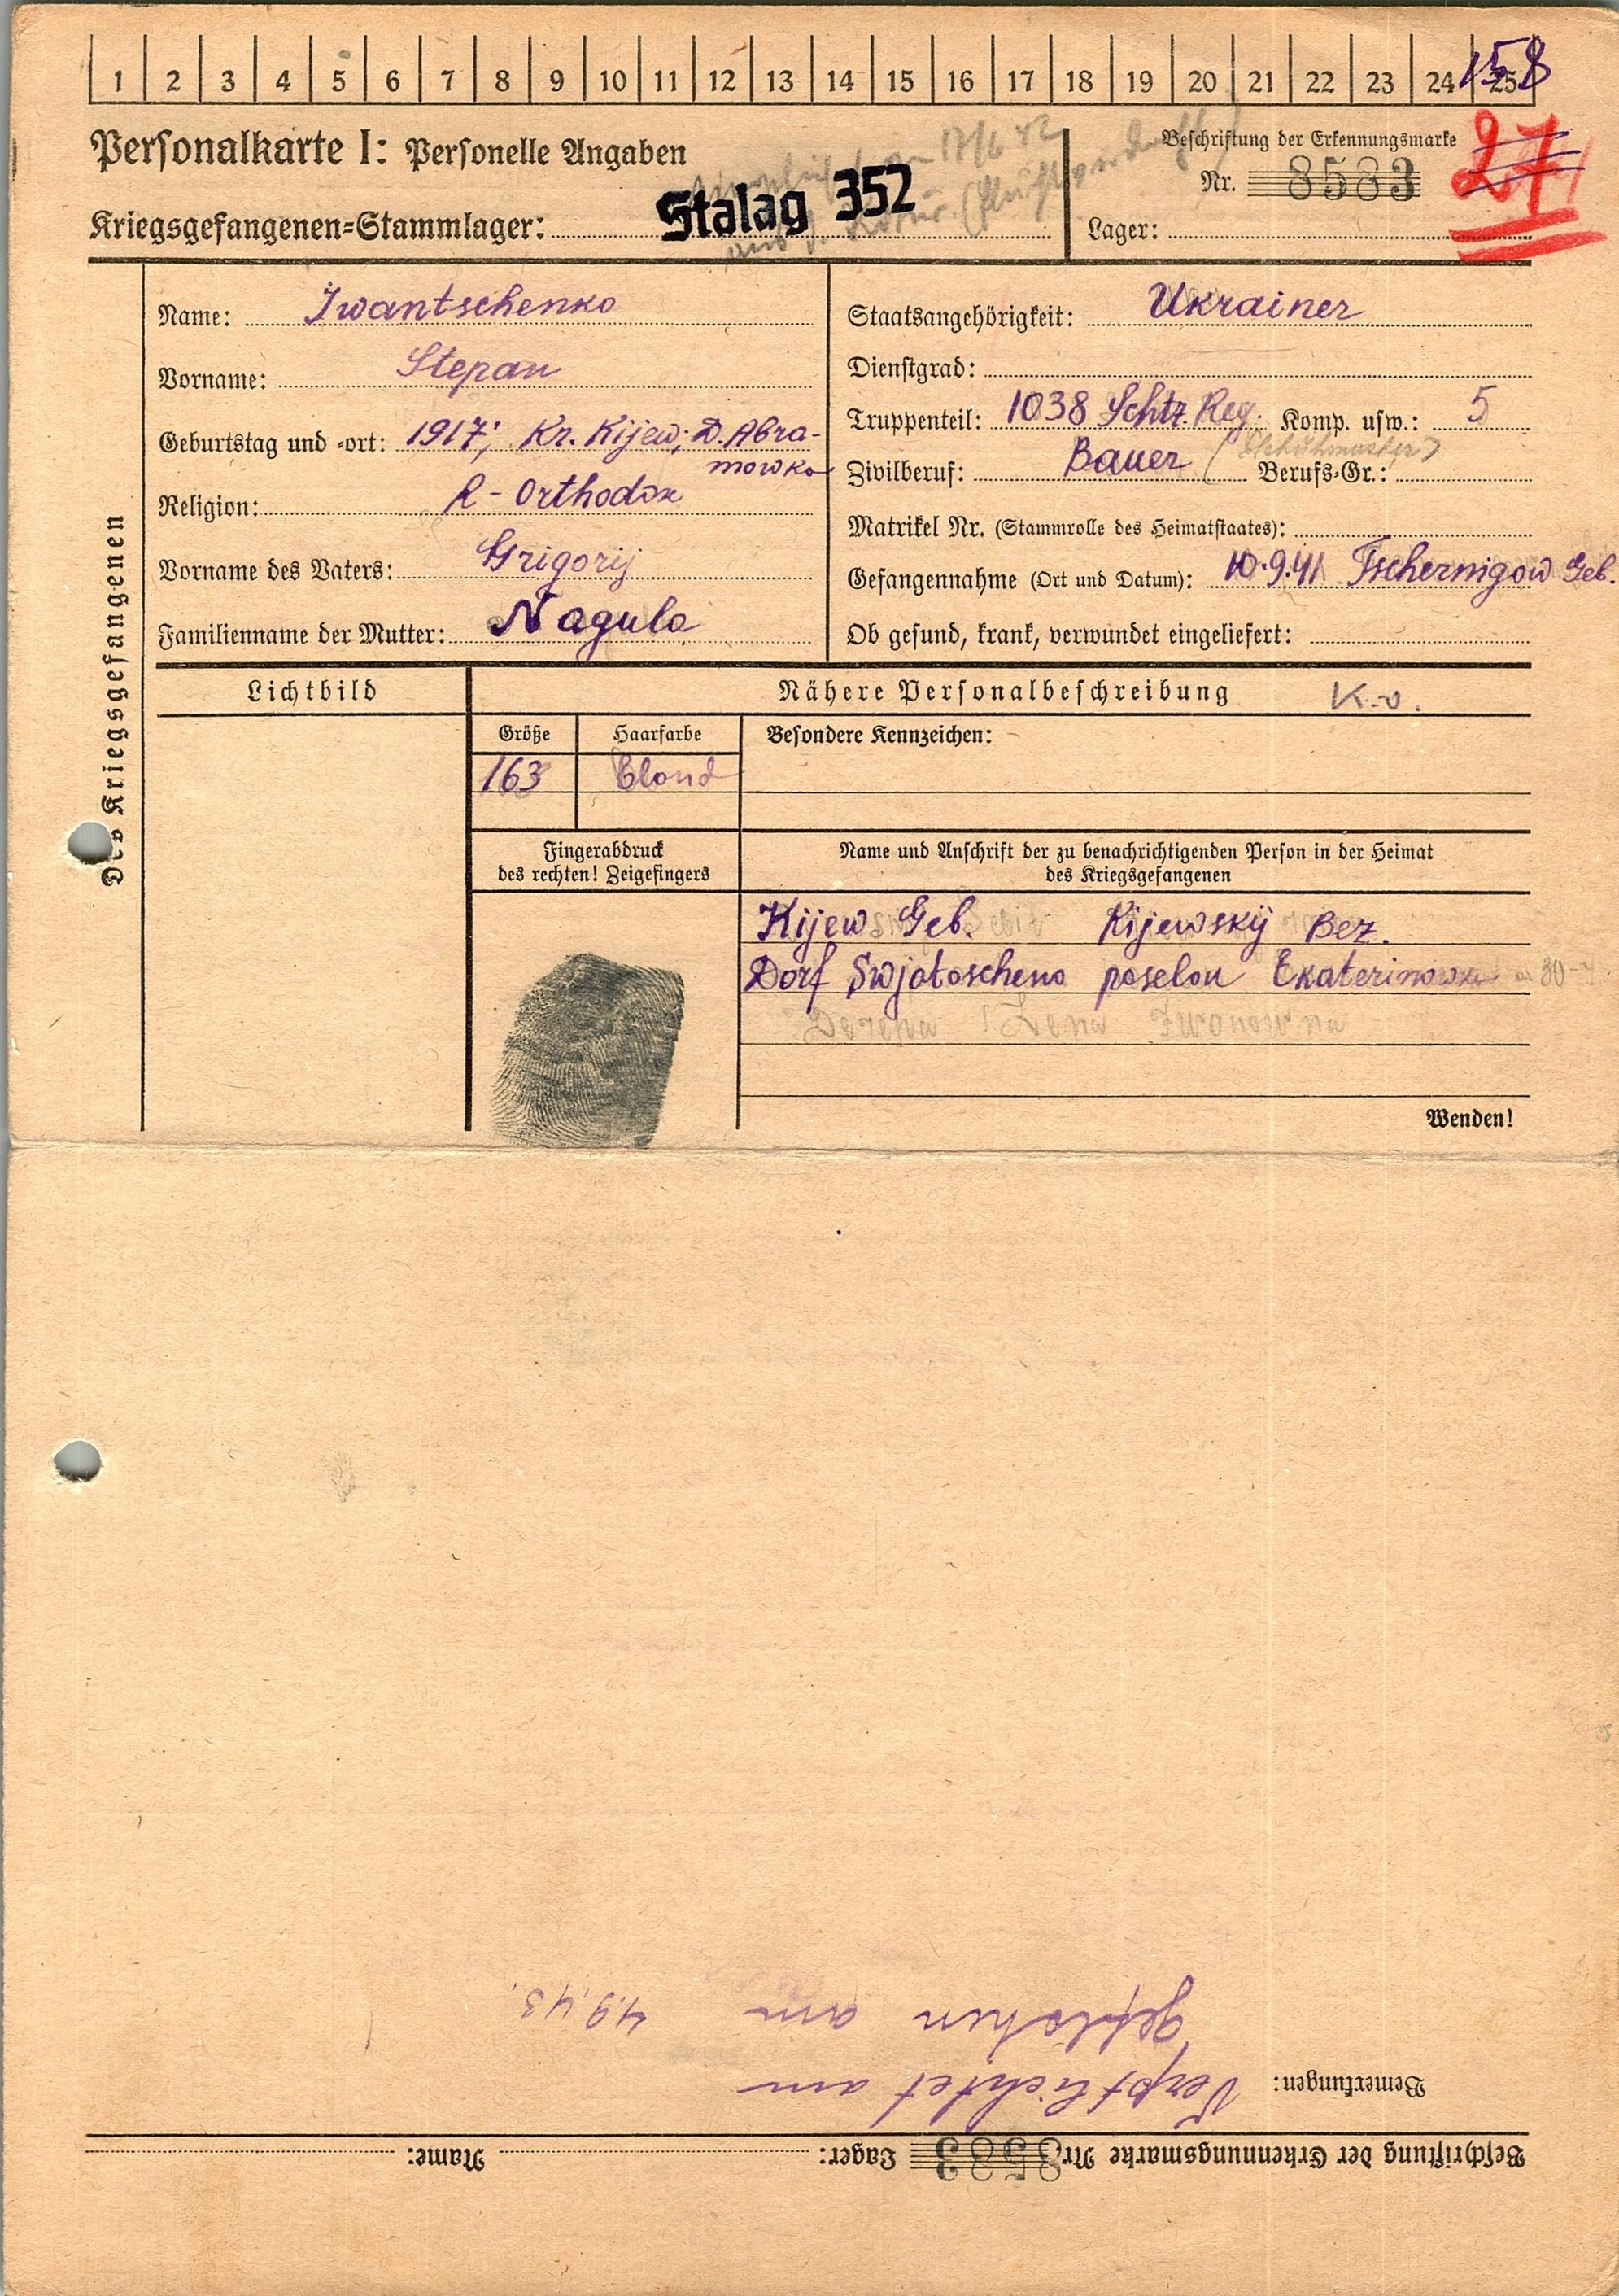 1 2 3 4 5 6 7 8 9 10 11 12 13 14 15 16 17 18 19 20 21 22 23 24 25 158
Personalkarte I: Personelle Angaben
17/6 42
Beschriftung der Erkennungsmarke
Nr. 8583
27
Kriegsgefangenen=Stammlager: Stalag 352
Lager:
Des Kriegsgefangenen
Name: Iwantschenko
Vorname: Stepan
Geburtstag und =ort: 1917; Kr. Kijew; D. Abra-
mowka
Religion: R-Orthodox
Vorname des Vaters: Grigorij
Familienname der Mutter: Nagula
Staatsangehörigkeit: Ukrainer
Dienstgrad:
Truppenteil: 1038 Schtz. Reg. Komp. usw.: 5
Zivilberuf: Bauer Berufs=Gr.:
Matrikel Nr. (Stammrolle des Heimatstaates):
Gefangennahme (Ort und Datum): 10.9.41 Tschernigow Geb.
Ob gesund, krank, verwundet eingeliefert:
Lichtbild
Nähere Personalbeschreibung K.v.
Größe Haarfarbe Besondere Kennzeichen:
163 blond
Fingerabdruck
des rechten! Zeigefingers
Name und Anschrift der zu benachrichtigenden Person in der Heimat
des Kriegsgefangenen
Kijew Geb. Kijewskij Bez.
Dorf Swjatoscheno poselon Ekaterinowka
Wenden!
Beschriftung der Erkennungsmarke Nr. 8583 Lager: Name:
Bemerkungen: Verpflichtet am
geflohen am 4.9.43.